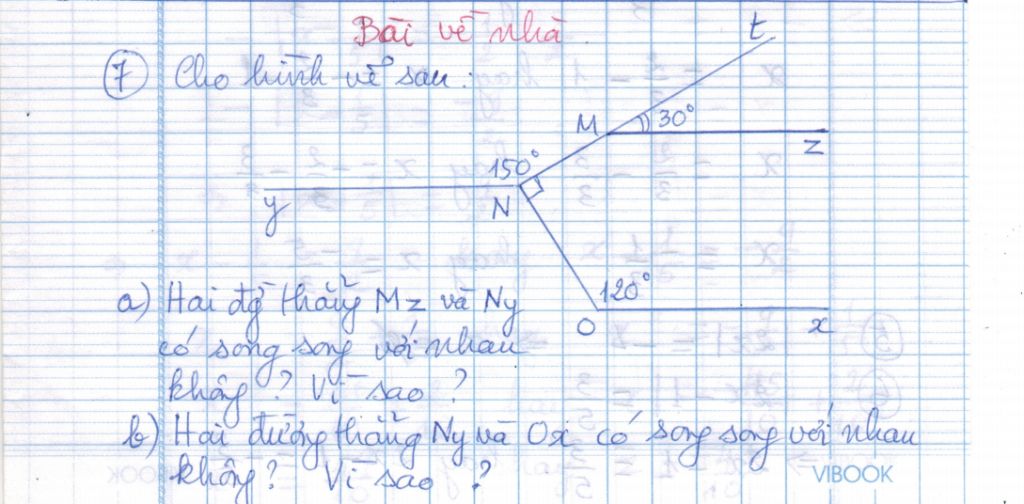 Bài về nhà
⑦ Cho hình vẽ sau:
t
M 30°
z
150°
y N
120°
O x
a) Hai đg thẳng Mz và Ny
có song song với nhau
không? Vì sao?
b) Hai đường thẳng Ny và Ox có song song với nhau
không? Vì sao?
VIBOOK